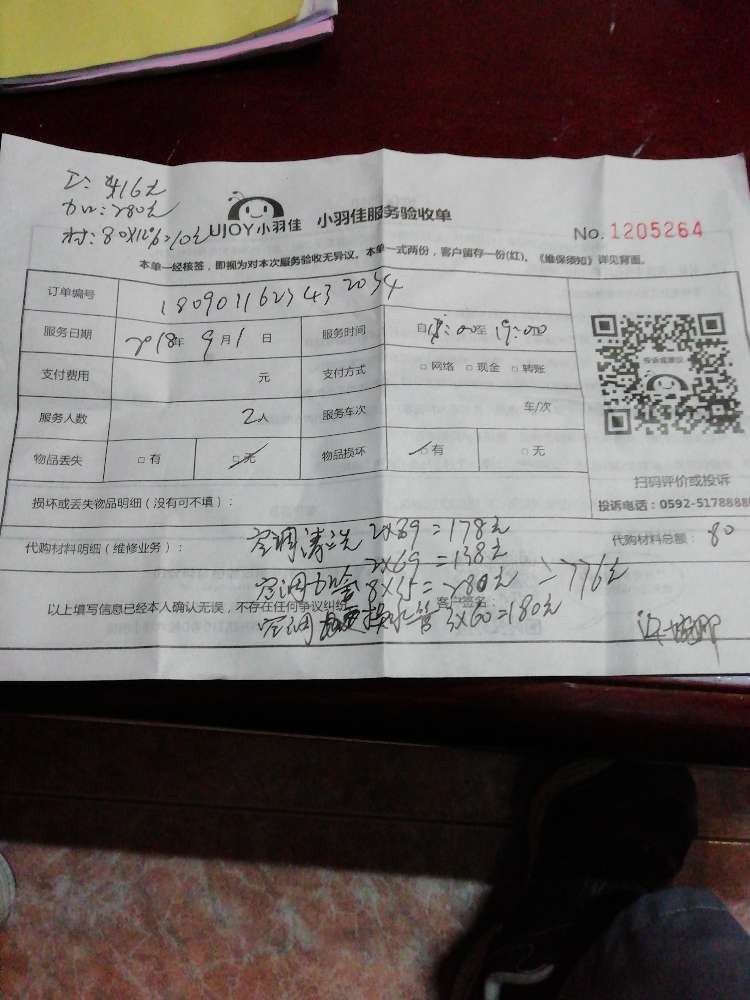 工：416元
加：280元
材：80X12%=10元
UJOY小羽佳 小羽佳服务验收单
No. 1205264
本单一经核签，即视为对本次服务验收无异议。本单一式两份，客户留存一份(红)。《维保须知》详见背面。
订单编号
服务日期 2018年 9月1日 服务时间 自 :00至 19:00
支付费用 元 支付方式 □网络 □现金 □转账
服务人数 2人 服务车次 车/次
物品丢失 □有 □无 物品损坏 □有 □无
投诉或建议
扫码评价或投诉
投诉电话：0592-5178888
损坏或丢失物品明细（没有可不填）：
代购材料明细（维修业务）： 空调清洗 2X89=178元 代购材料总额：80
2X69=138元
空调加 8X35=280元 =776元
以上填写信息已经本人确认无误，不存在任何争议纠纷 客户签名：
空调 换水管 3X60=180元